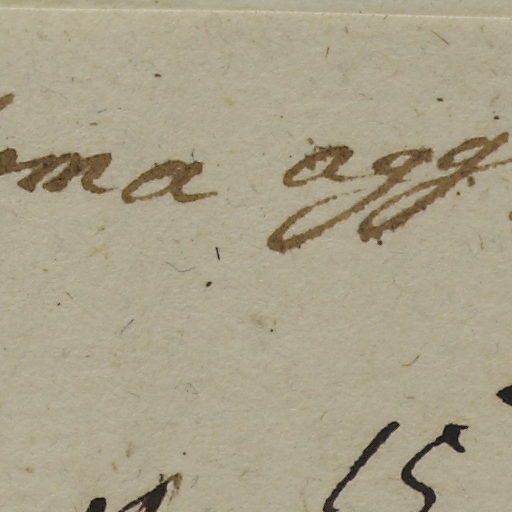 oma agg
15